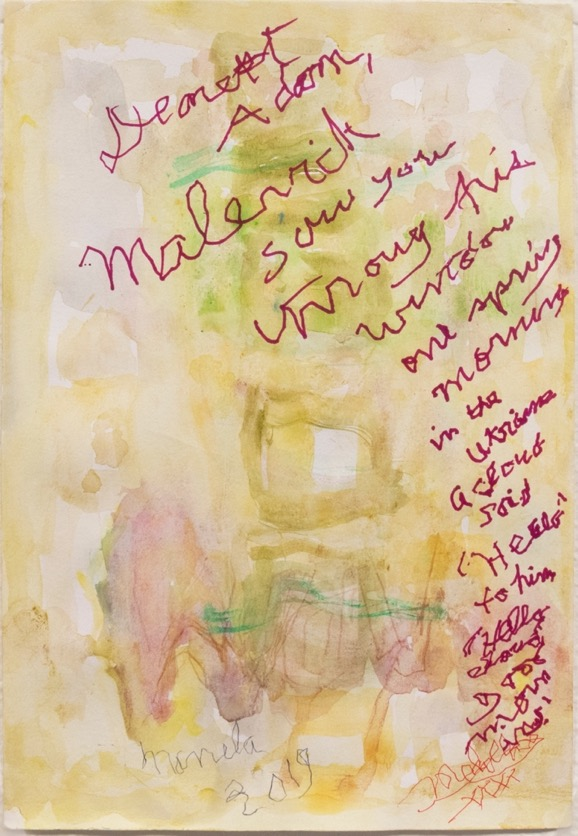 Dearest
Adam,
Malevich
saw you
through his
window
one spring
morning
in the
Ukriane
a cloud
said
"Hello"
to him
"Hello
cloud
good
morn
Manuela
2019
xxx